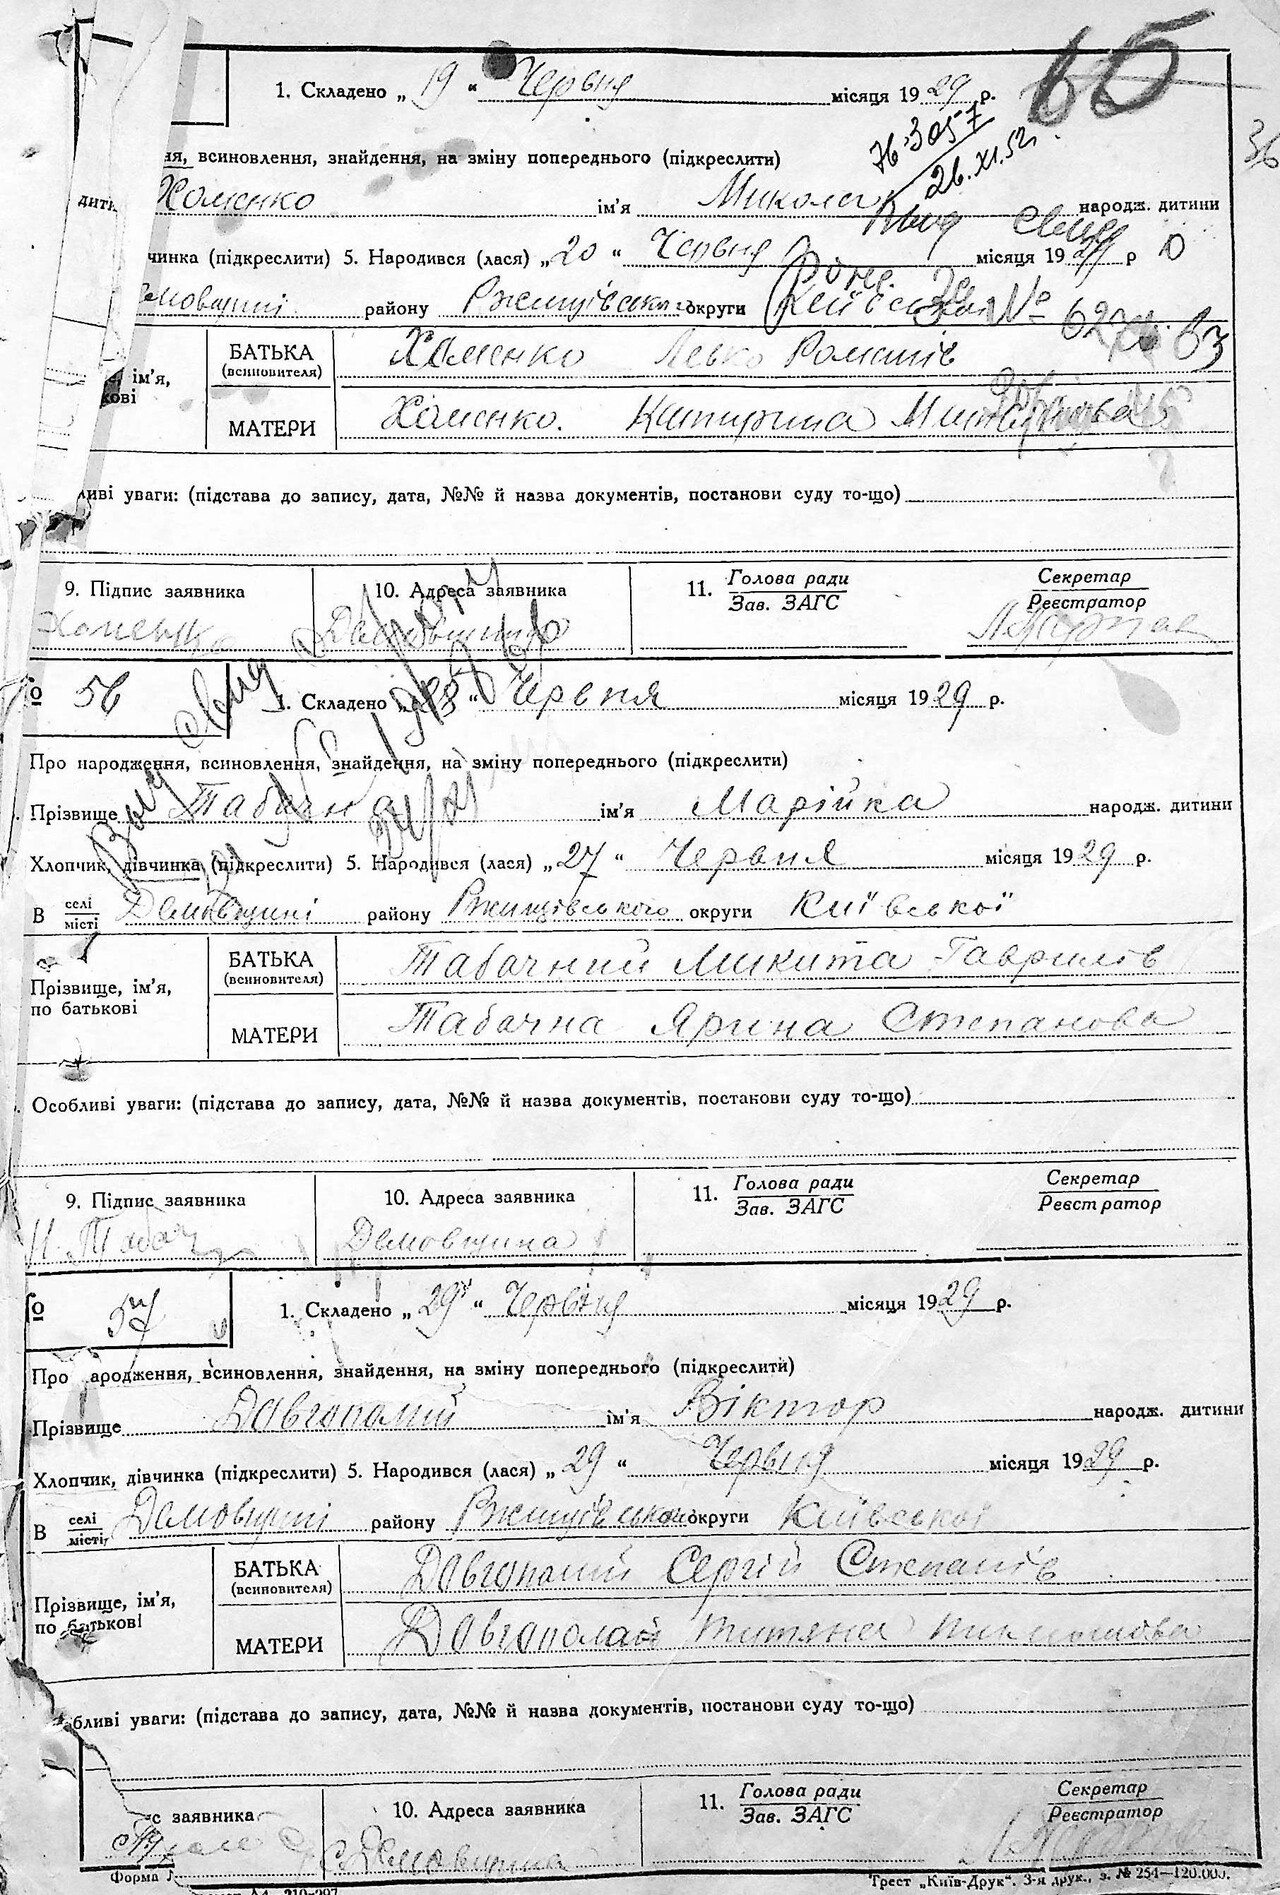 1. Складено „ 19 “ Червня місяця 1929 р.
65
36
ня, всиновлення, знайдення, на зміну попереднього (підкреслити)
76-3057
26.XI.52
дити Хоменко ім'я Микола народж. дитини
чинка (підкреслити) 5. Народився (лася) „ 20 “ Червня місяця 1929 р
району Ржищівськ округи Київської
№
БАТЬКА (всиновителя) Хоменко Левко Романів
ім'я,
кові
МАТЕРИ Хоменко Катирина
ливі уваги: (підстава до запису, дата, №№ й назва документів, постанови суду то-що)
9. Підпис заявника 10. Адреса заявника 11. Голова ради Зав. ЗАГС Секретар Реєстратор
Хоменко Демовщина
№ 56 1. Складено „ 28 “ Червня місяця 1929 р.
Про народження, всиновлення, знайдення, на зміну попереднього (підкреслити)
Прізвище Табачна ім'я Марійка народж. дитини
Хлопчик, дівчинка (підкреслити) 5. Народився (лася) „ 27 “ Червня місяця 1929 р.
В селі місті Демовщині району Ржищівського округи Київської
БАТЬКА (всиновителя) Табачний Микита Гаврилів
Прізвище, ім'я,
по батькові
МАТЕРИ Табачна Ярина Степанова
Особливі уваги: (підстава до запису, дата, №№ й назва документів, постакови суду то-що)
9. Підпис заявника 10. Адреса заявника 11. Голова ради Зав. ЗАГС Секретар Реєстратор
Н. Табач Демовщина
№ 57 1. Складено „ 29 “ Червня місяця 1929 р.
Про ародження, всиновлення, знайдення, на зміну попереднього (підкреслити)
Прізвище Довгополий ім'я Віктор народж. дитини
Хлопчик, дівчинка (підкреслити) 5. Народився (лася) „ 29 “ Червня місяця 1929 р.
В селі місті Демовщині району Ржищівського округи Київської
БАТЬКА (всиновителя) Довгополий Сергій Степанів
Прізвище, ім'я,
по батькові
МАТЕРИ Довгополая Титяна
бливі уваги: (підстава до запису, дата, №№ й назва документів, постанови суду то-що)
с заявника 10. Адреса заявника 11. Голова ради Зав. ЗАГС Секретар Реєстратор
с Демовщина
Форма
А4 210×297
Трест „Київ-Друк“. 3-я друк., з. № 254—120.000.